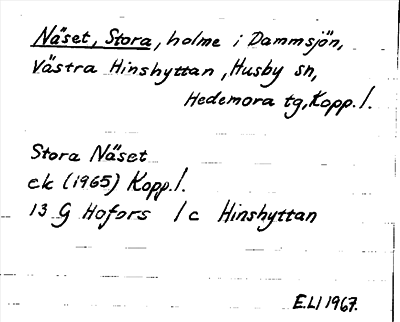 Näset, Stora, holme i Dammsjön,
Västra Hinshyttan, Husby sn,
Hedemora tg, Kopp. l.
Stora Näset
ek (1965) Kopp. l.
13 G Hofors 1 c Hinshyttan
E.LI 1967.